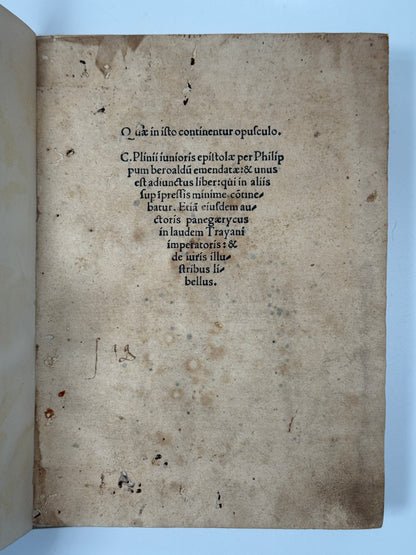 Quæ in isto continentur opusculo.
C. Plinii iunioris epistolæ per Philip
pum beroaldū emendatæ: & unus
est adiunctus liber: qui in aliis
sup īpressis minime cōtine⸗
batur. Etiā eiusdem au⸗
ctoris panegærycus
in laudem Trayani
imperatoris: &
de uiris illu⸗
stribus li⸗
bellus.